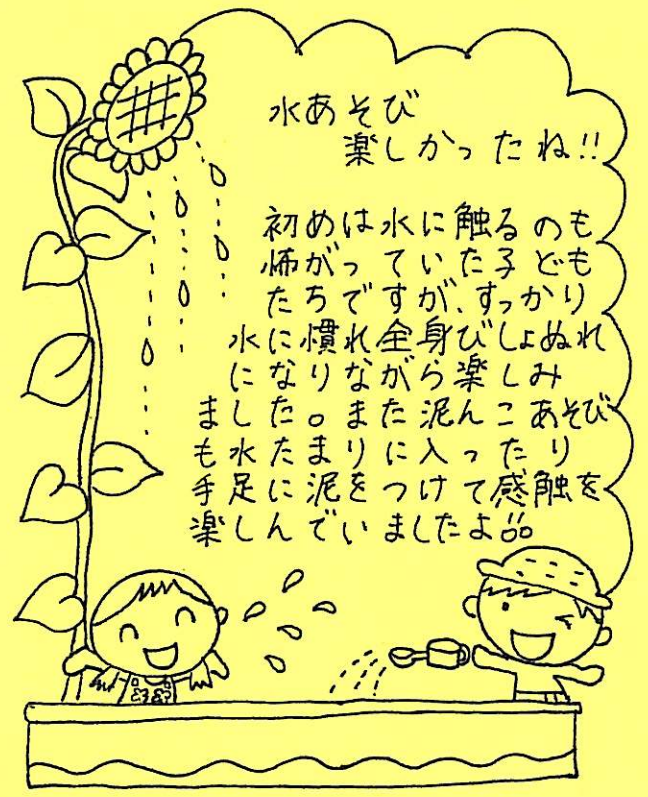 水あそび
楽しかったね!!
初めは水に触るのも
怖がっていた子ども
たちですが、すっかり
水に慣れ全身びしょぬれ
になりながら楽しみ
ました。また泥んこあそび
も水たまりに入ったり
手足に泥をつけて感触を
楽しんでいましたよ!!